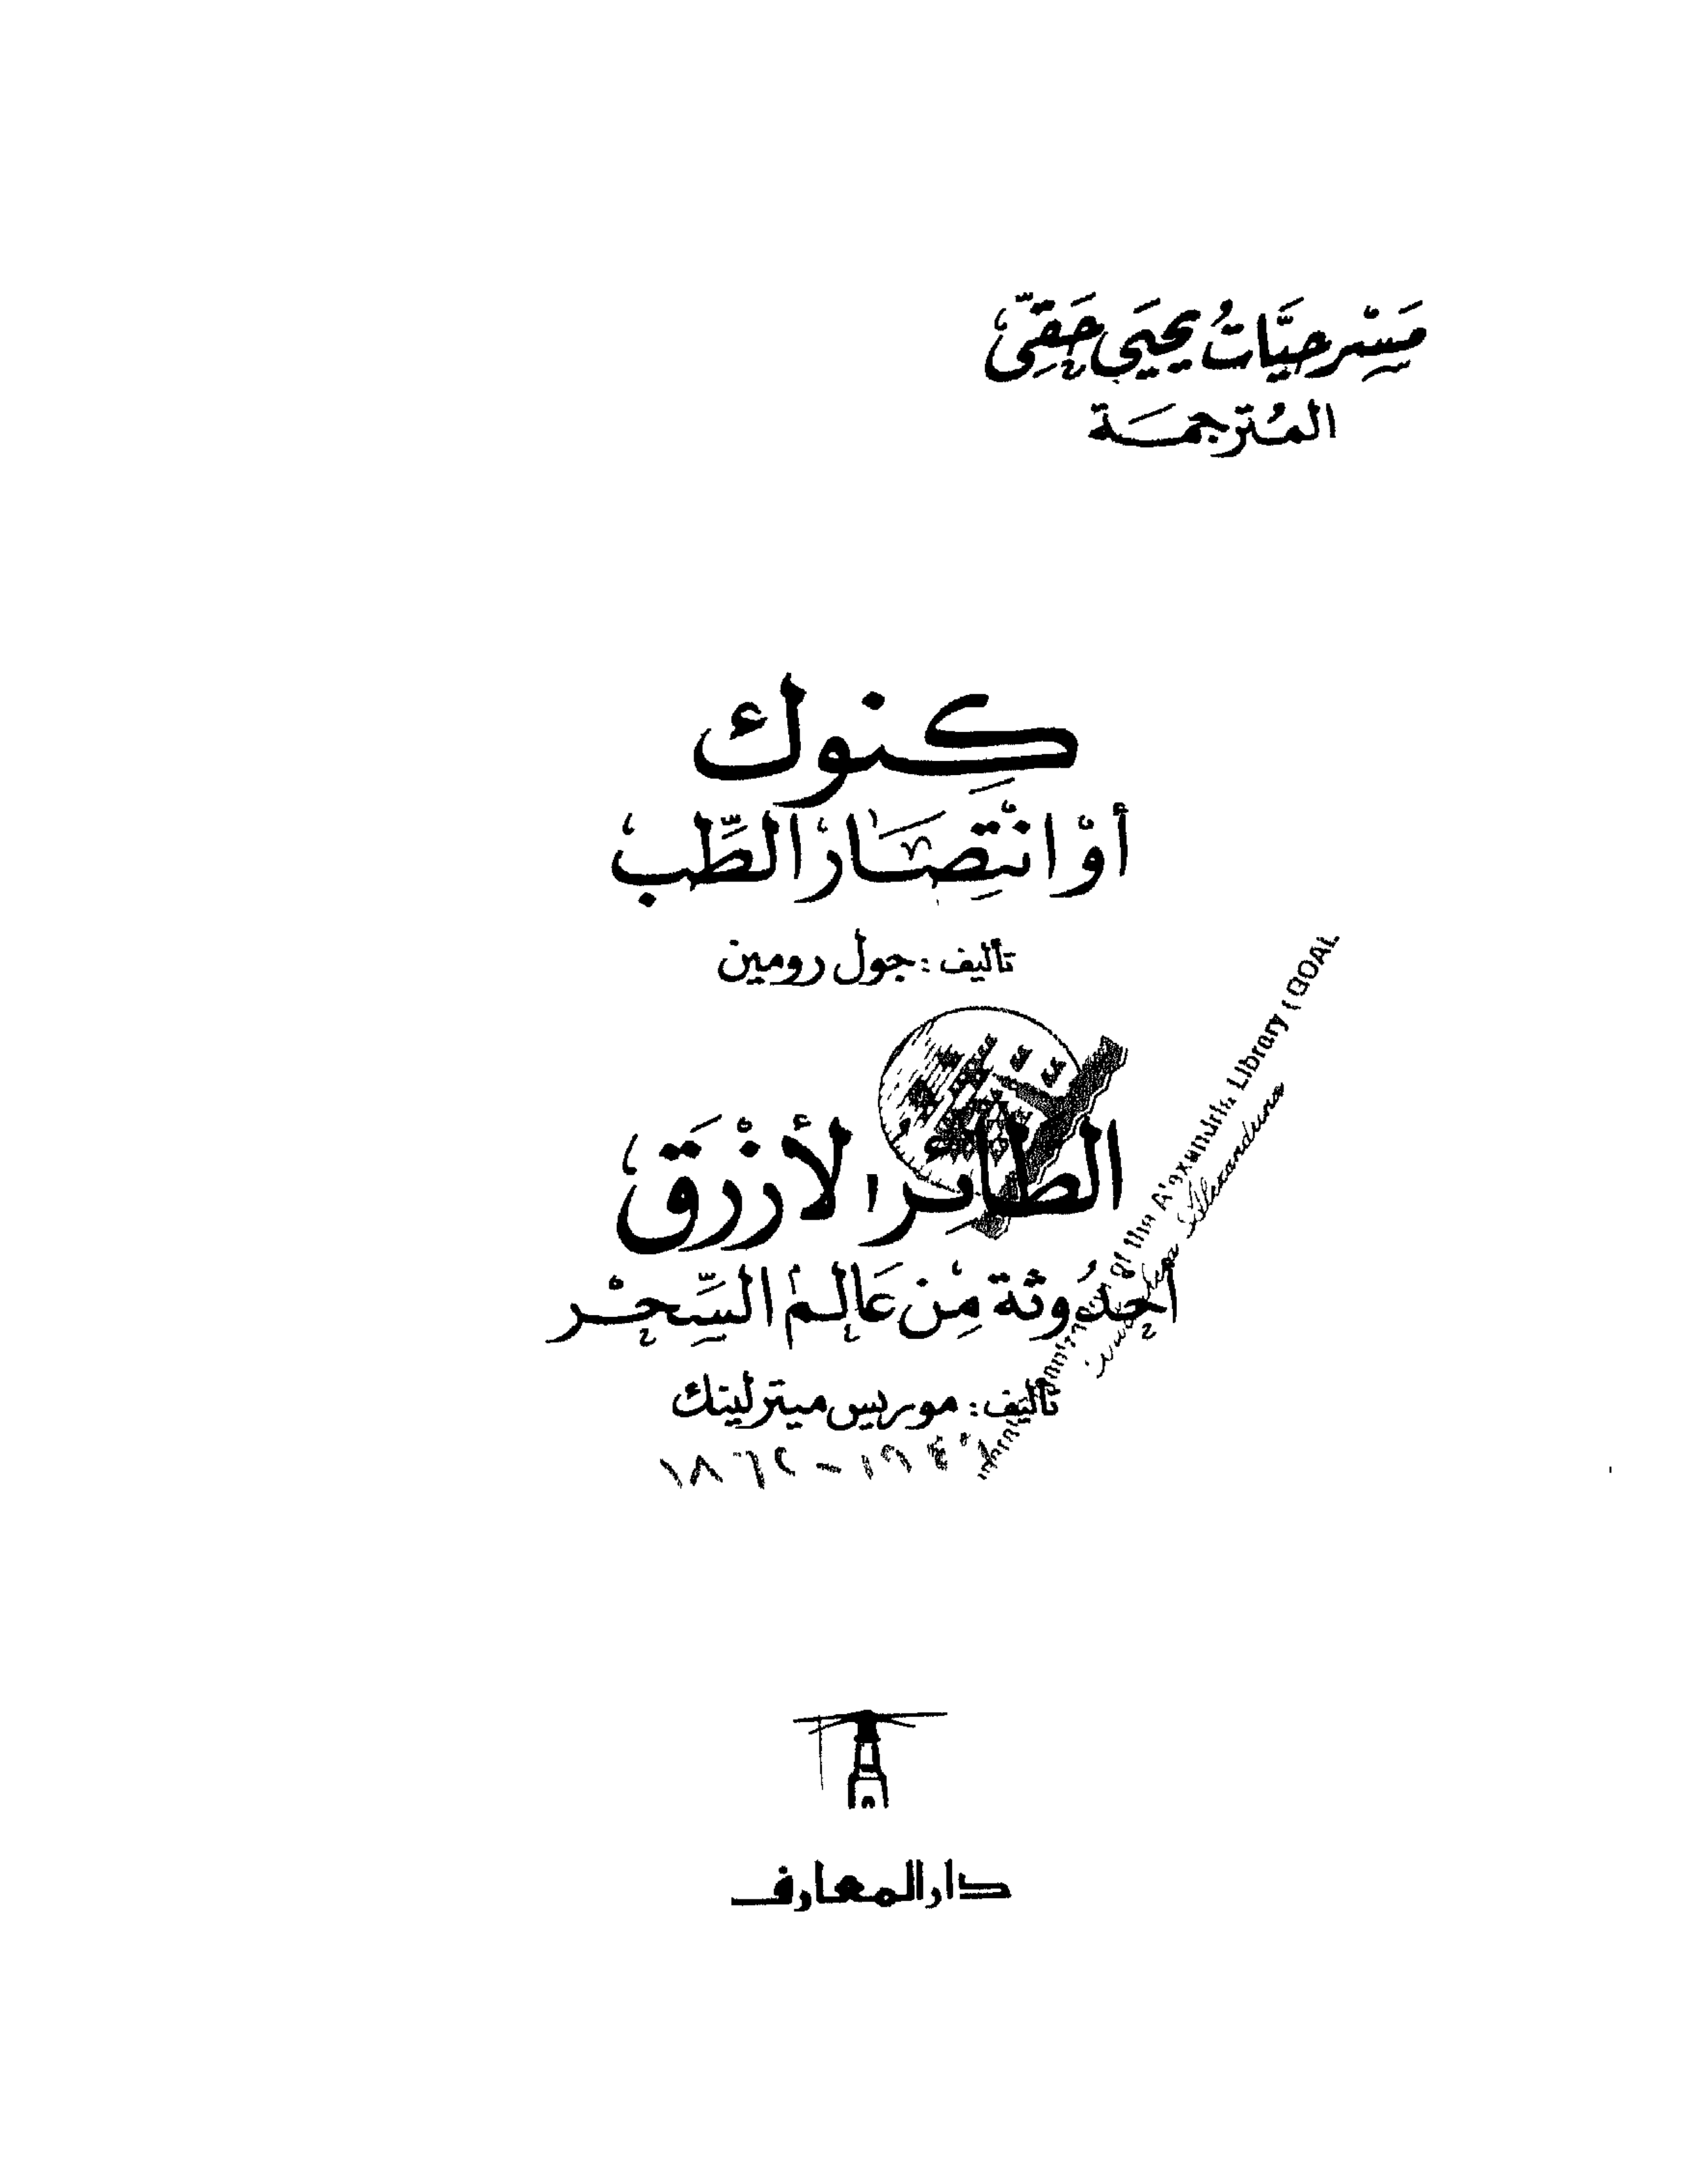 مَسْرحيَّاتُ يحيَى حَقِّى
المُترجمَة
كِنوك
أوْ انْتِصَارْ الطِّب
تأليف : جول رومين
الطائر الأزْرَق
أحدُوثة مِنْ عَالمْ السِّحْر
تأليف : موريس ميترلينك
١٨٦٢ - ١٩٤
Library (GOAL
دار المعارف